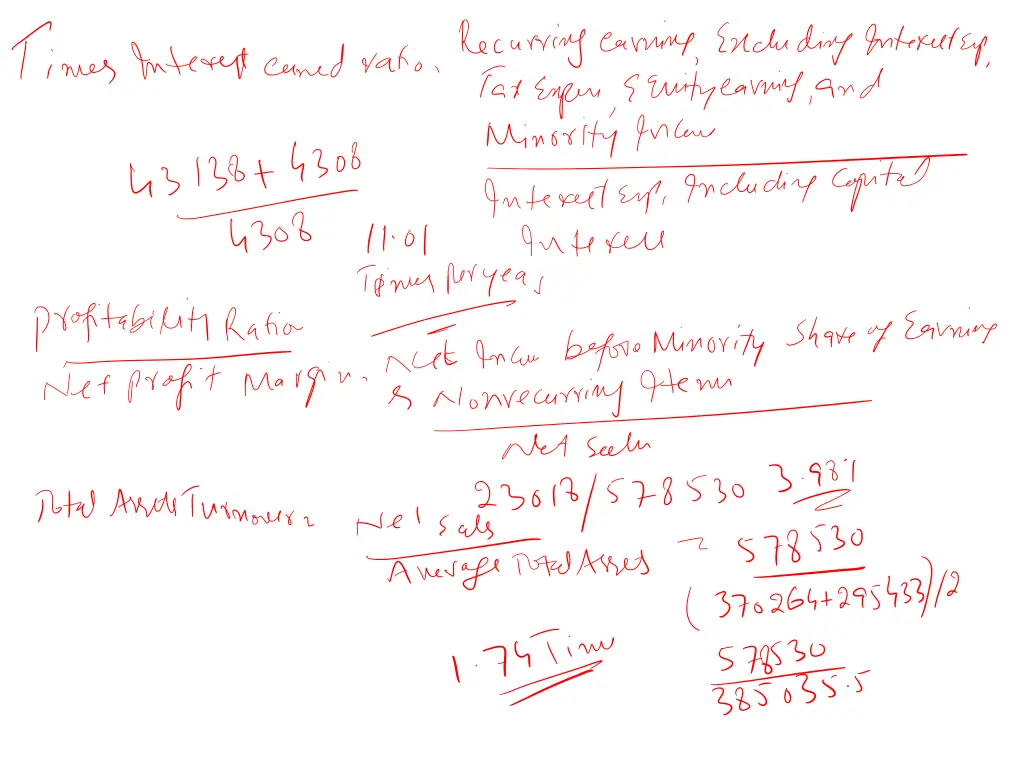 Times Interest earned ratio. Recurring earning, Excluding Interest Exp,
Tax Expen, & Equity earning, and
Minority Incom
43138 + 4308
4308
Interest Exp, Including Capital
Interest
11.01
Times per year
Profitability Ratio
Net Profit Margin. Net Incom before Minority Share of Earning
& Nonrecurring Items
Net Sales
23018/578530 3.98%
Total Assets Turnover = Net Sales
Average Total Assets
= 578530
(370264+295433)/2
578530
385035.5
1.74 Time